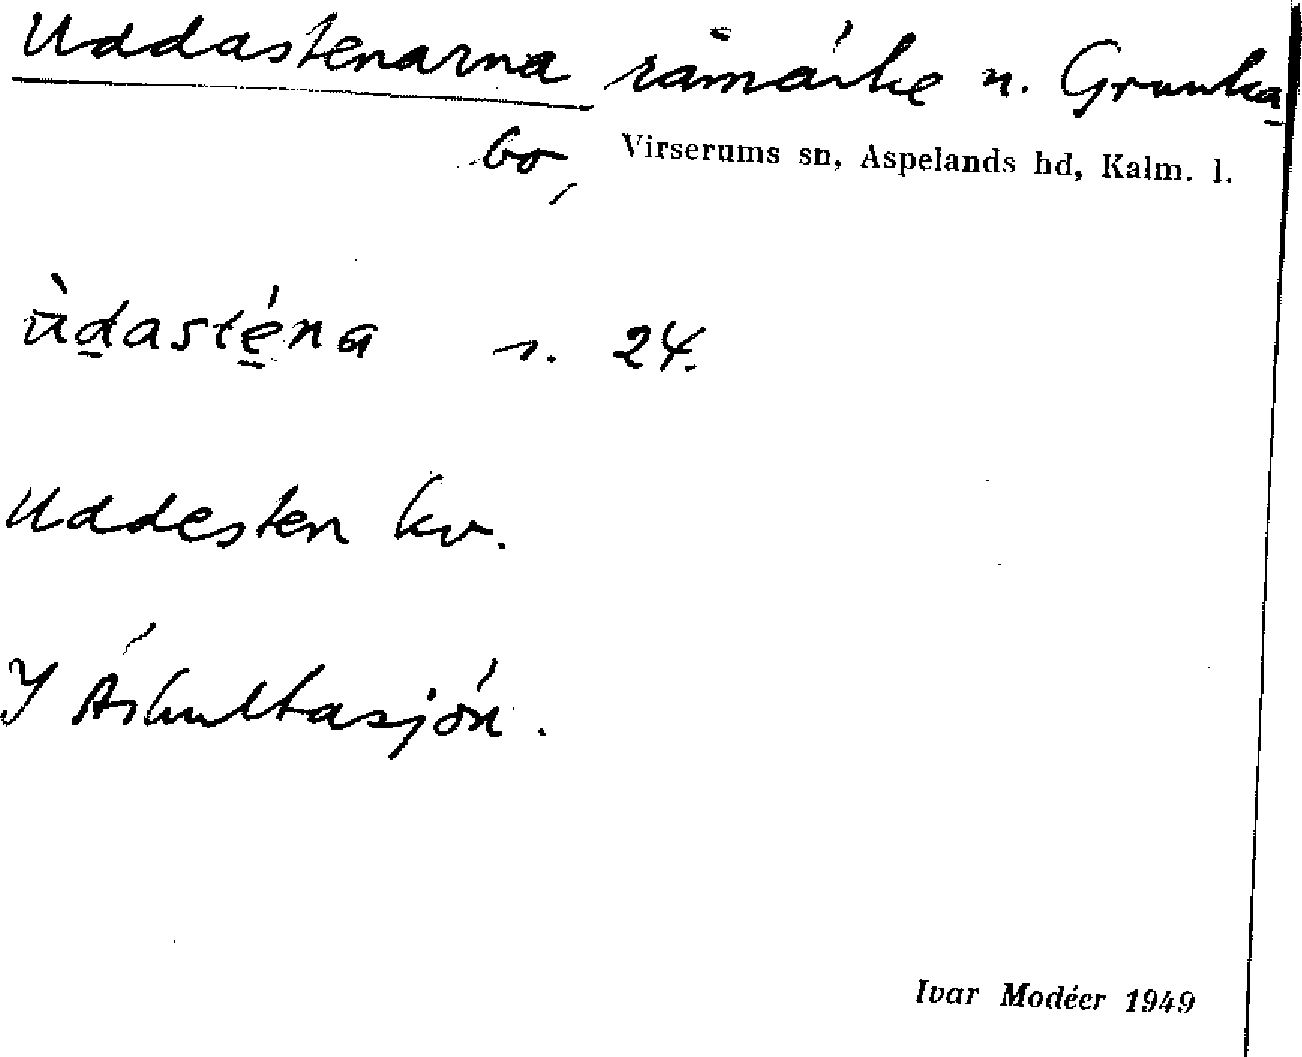 Uddastenarna råmärke n. Grunka
bo, Virserums sn, Aspelands hd, Kalm. l.
ùdasténa s. 24.
Uddesten kv.
I Åskultasjön.
Ivar Modéer 1949